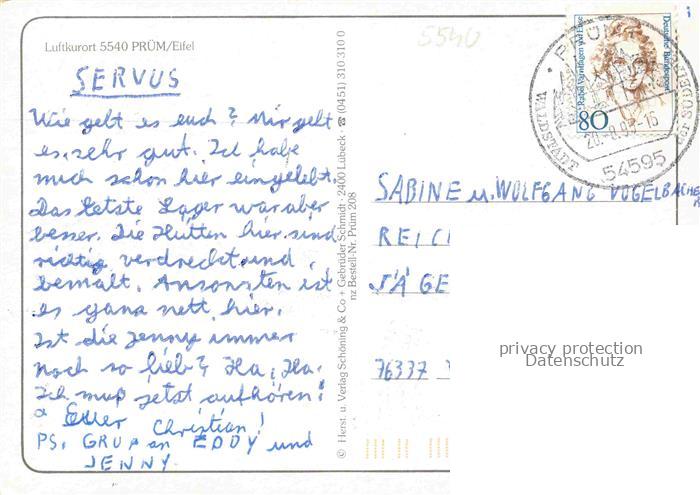 Luftkurort 5540 PRÜM/Eifel
5540
SERVUS
Wie geht es euch? Mir geht
es sehr gut. Ich habe
mich schon hier eingelebt.
Das letzte Lager war aber
besser. Die Hütten hier sind
richtig verdreckt und
bemalt. Ansonsten ist
es ganz nett hier.
Ist die Jenny immer
noch so lieb? Ha, Ha.
Ich muß jetzt aufhören!
Euer Christian!
PS. GRUß an EDDY und
JENNY
© Herst. u. Verlag Schöning & Co + Gebrüder Schmidt · 2400 Lübeck · ☎ (04 51) 310 310 0
nz Bestell-Nr. Prüm 208
Deutsche Bundespost
Rahel Varnhagen von Ense
80
PRÜM
WALDSTADT
54595
SABINE u. WOLFGANG VOGELBACHE
REIC
JÄGE
76337
privacy protection
Datenschutz